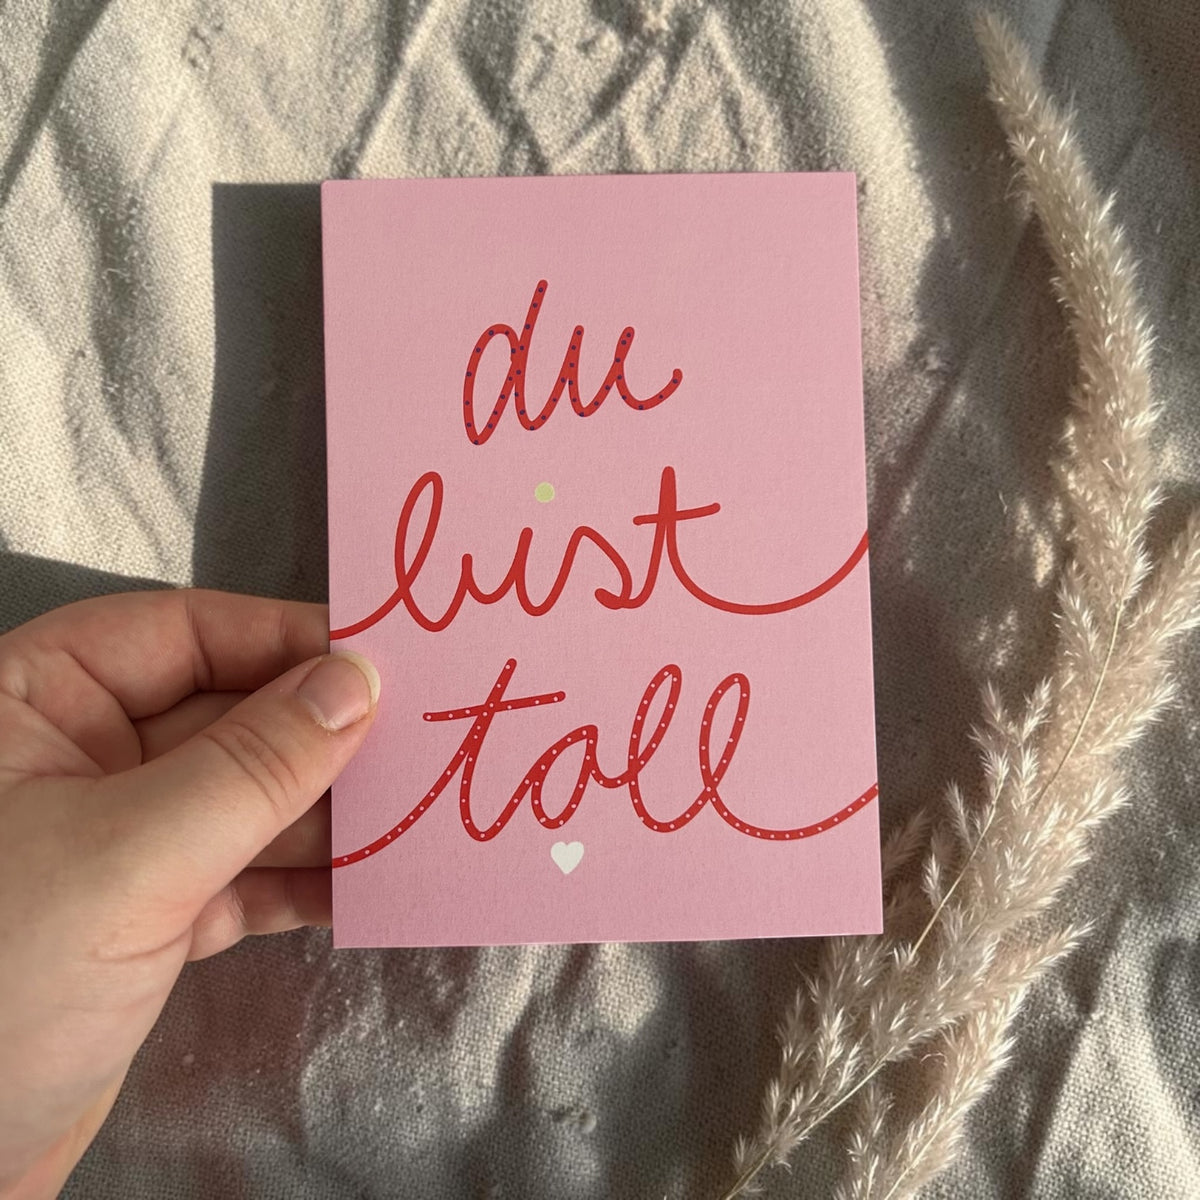 du
bist
toll